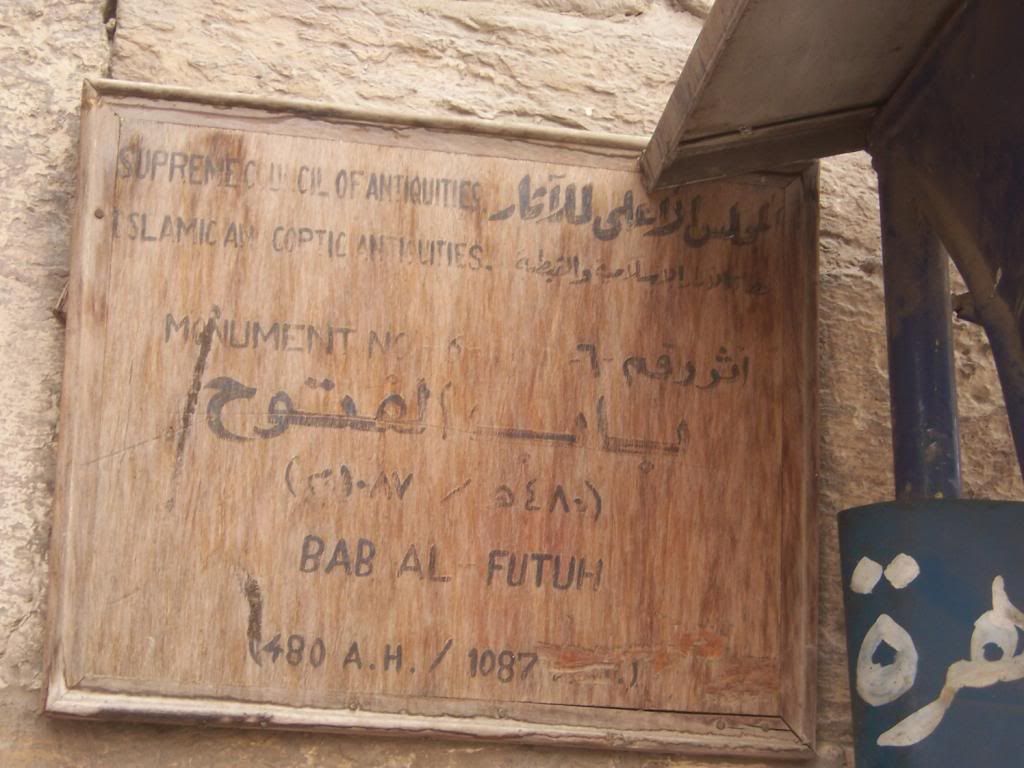 SUPREME COUNCIL OF ANTIQUITIES
المجلس الاعلى للآثار
ISLAMIC AND COPTIC ANTIQUITIES.
الاسلامية والقبطية
MONUMENT NO - 6 -
اثر رقم -٦-
باب الفتوح
(٤٨٠ه / ١٠٨٧م)
BAB AL - FUTUH
(480 A.H. / 1087
هرة